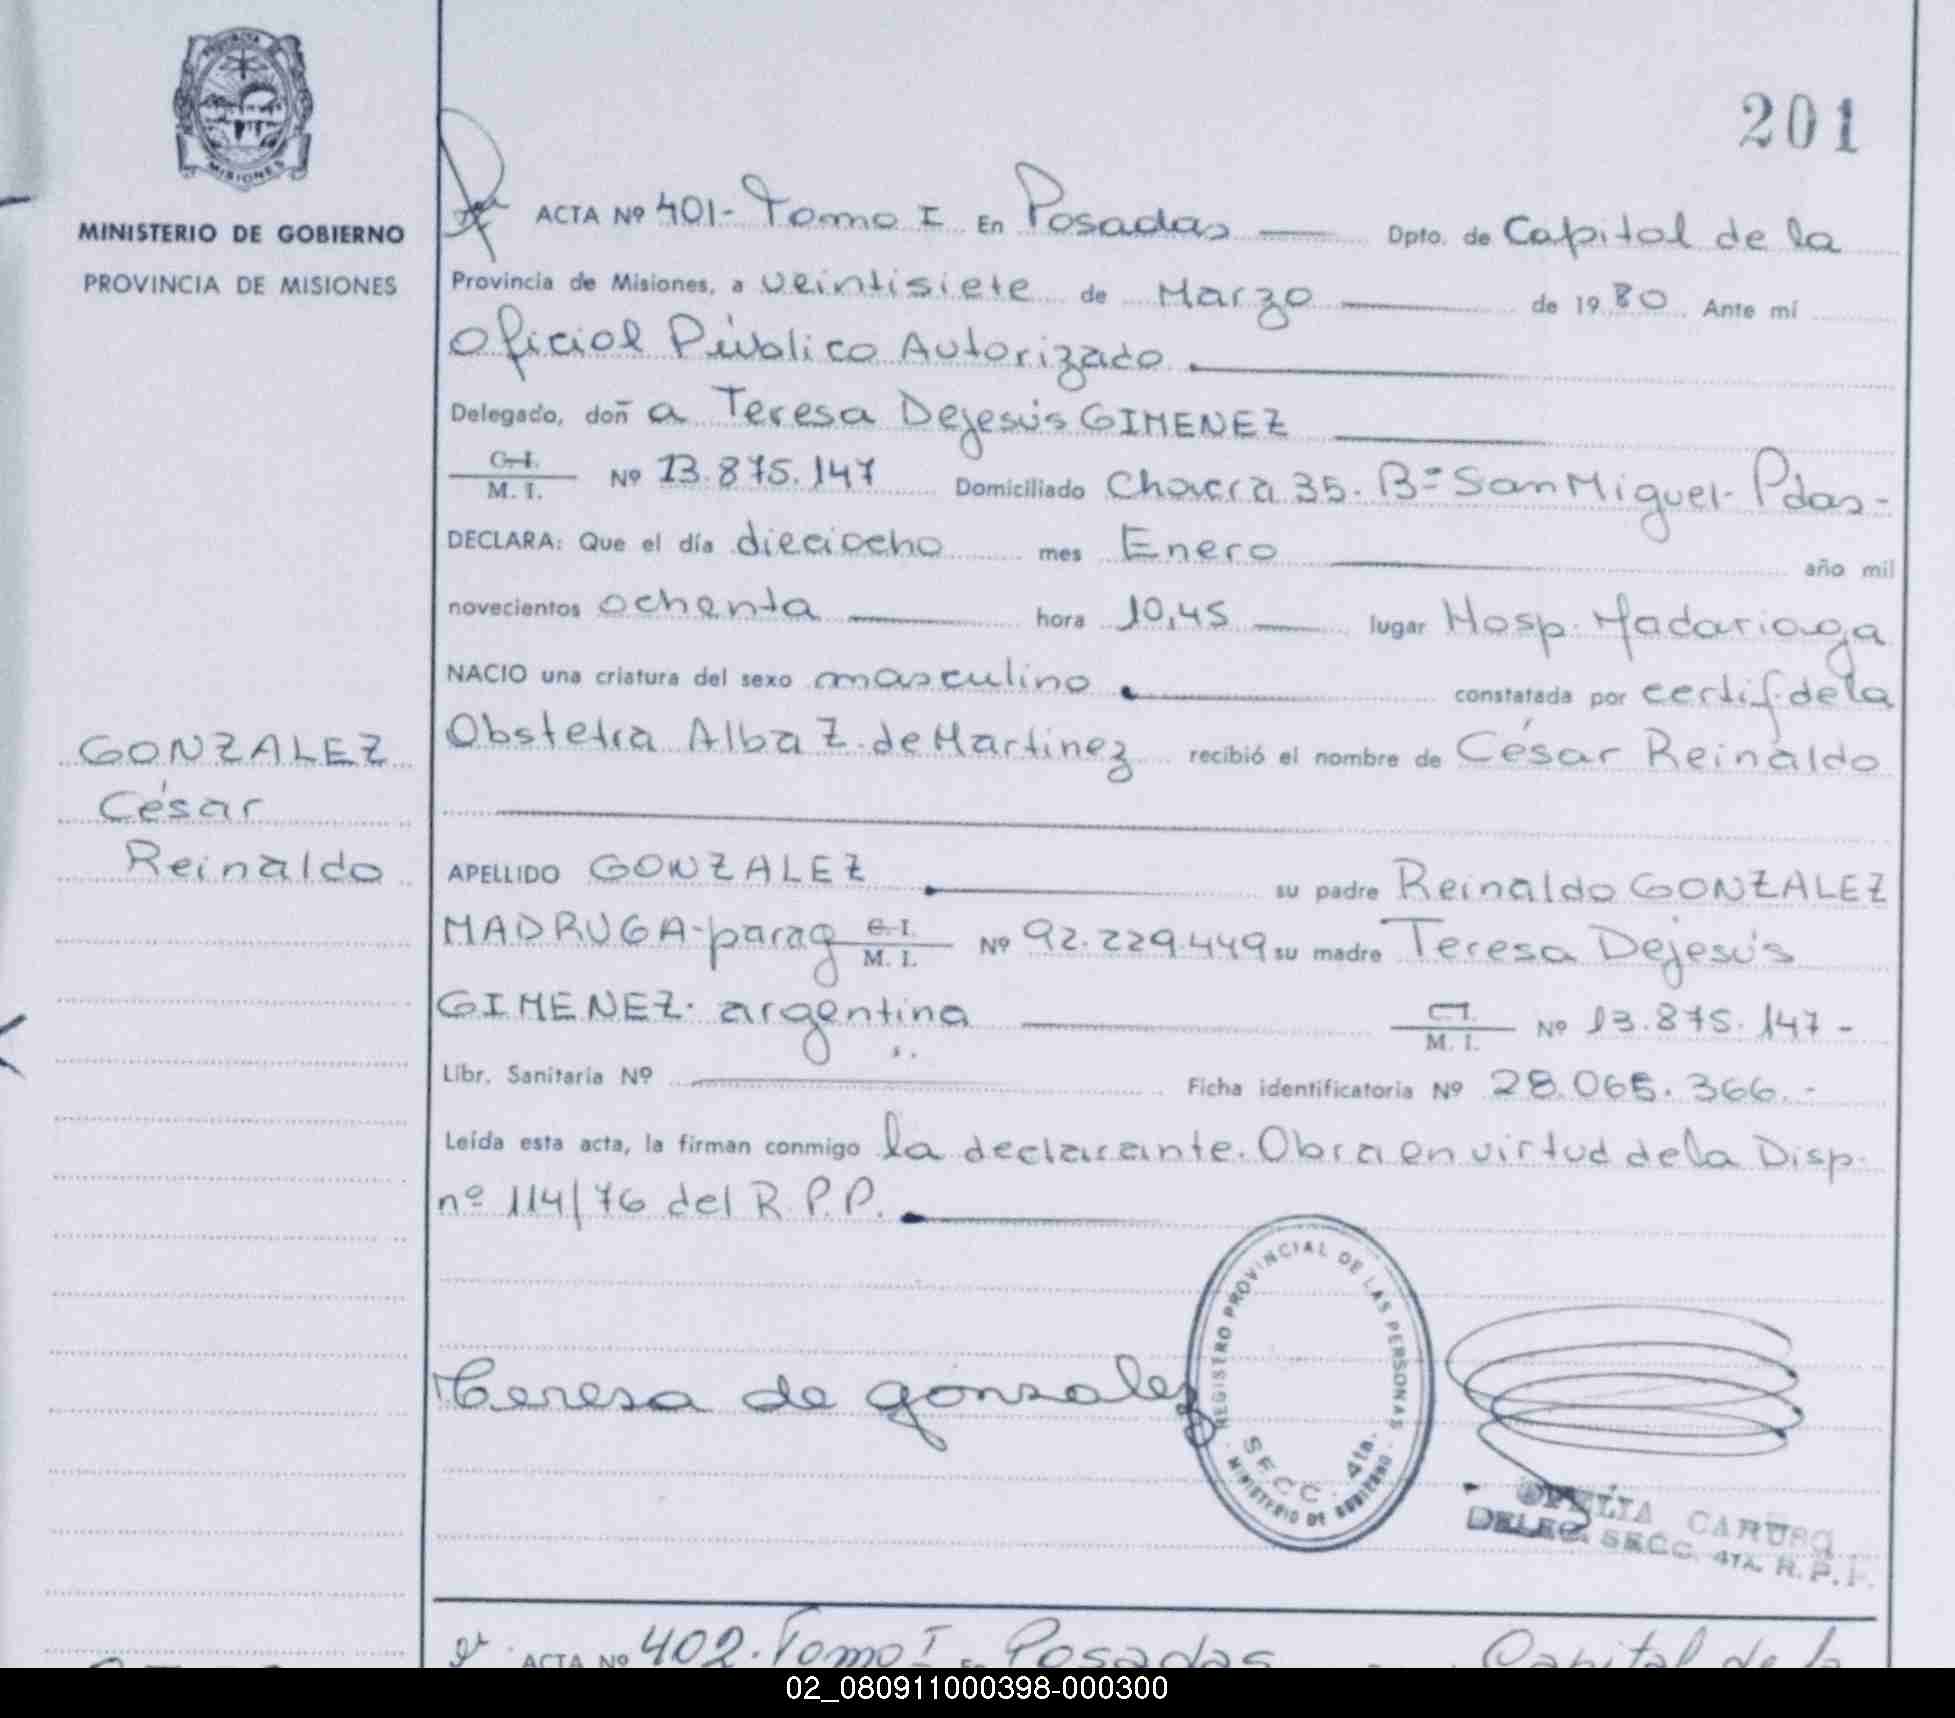 201
PROVINCIA DE
MISIONES
MINISTERIO DE GOBIERNO
PROVINCIA DE MISIONES
ACTA Nº 401- Tomo I En Posadas Dpto. de Capital de la
Provincia de Misiones, a veintisiete de Marzo de 1980 Ante mí
Oficial Público Autorizado
Delegado, doña Teresa Dejesús GIMENEZ
C.I.
M. I. Nº 13.875.147 Domiciliado Chacra 35. Bº San Miguel- Pdas-
DECLARA: Que el día dieciocho mes Enero año mil
novecientos ochenta hora 10,45 lugar Hosp. Madariaga
NACIO una criatura del sexo masculino constatada por certif. de la
Obstetra Alba Z. de Martinez recibió el nombre de César Reinaldo
GONZALEZ
César
Reinaldo
APELLIDO GONZALEZ su padre Reinaldo GONZALEZ
MADRUGA-parag C.I. M. I. Nº 92.229.449 su madre Teresa Dejesús
GIMENEZ. argentina C.I. M. I. Nº 13.875.147-
Libr. Sanitaria Nº Ficha identificatoria Nº 28.065.366.-
Leída esta acta, la firman conmigo la declarante. Obra en virtud de la Disp.
nº 114/76 del R.P.P.
Teresa de gonsalez
REGISTRO PROVINCIAL DE LAS PERSONAS
SECC. 4ta.
MINISTERIO DE GOBIERNO
OFELIA CARUSO
DELEG. SECC. 4TA. R. P. P.
ACTA Nº 402. Tomo I En Posadas Capital de la
02_080911000398-000300